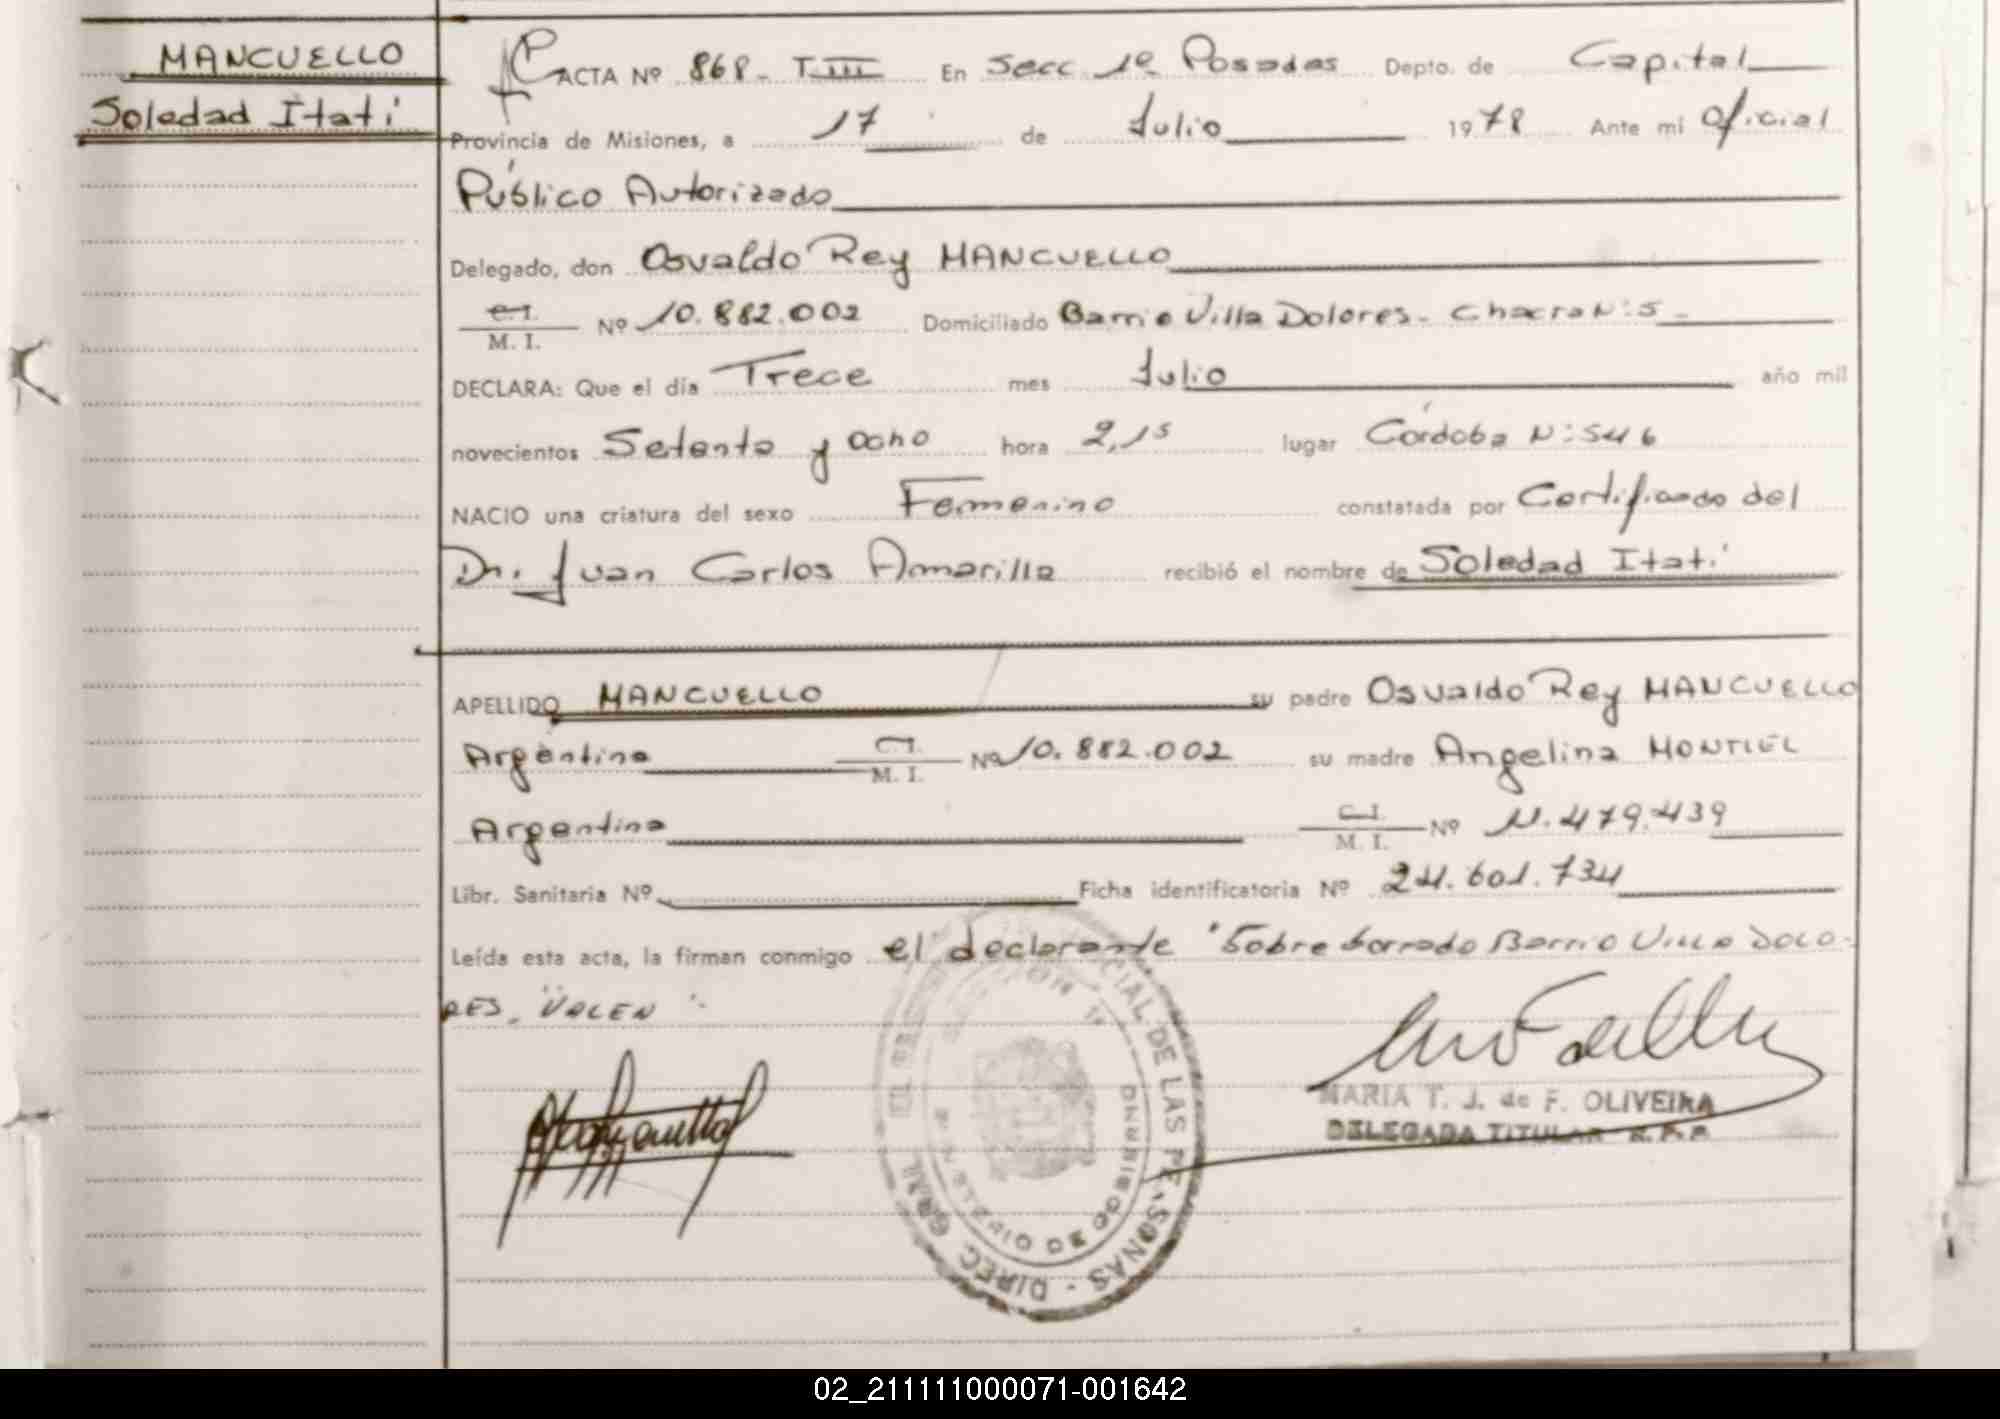 MANCUELLO
Soledad Itatí
ACTA Nº 868- T III En Secc. 1º Posadas Depto. de Capital
Provincia de Misiones, a 17 de Julio 1978 Ante mi Oficial
Público Autorizado
Delegado, don Osvaldo Rey MANCUELLO
C.I.
M. I. Nº 10.882.002 Domiciliado Barrio Villa Dolores- Chacra N:5-
DECLARA: Que el día Trece mes Julio año mil
novecientos Setenta y ocho hora 2,15 lugar Córdoba N:546
NACIO una criatura del sexo Femenino constatada por Certificado del
Dr. Juan Carlos Amarilla recibió el nombre de Soledad Itatí
APELLIDO MANCUELLO su padre Osvaldo Rey MANCUELLO
Argentino C.I.
M. I. Nº 10.882.002 su madre Angelina MONTIEL
Argentina C.I.
M. I. Nº 11.479.439
Libr. Sanitaria Nº Ficha identificatoria Nº 24.601.734
Leída esta acta, la firman conmigo el declarante "Sobre borrado Barrio VILLA DOLO-
RES. VALEN"
MARIA T. J. de F. OLIVEIRA
DELEGADA TITULAR R.P.P.
DIREC. GRAL. DEL REG. PROVINCIAL DE LAS PERSONAS
02_211111000071-001642